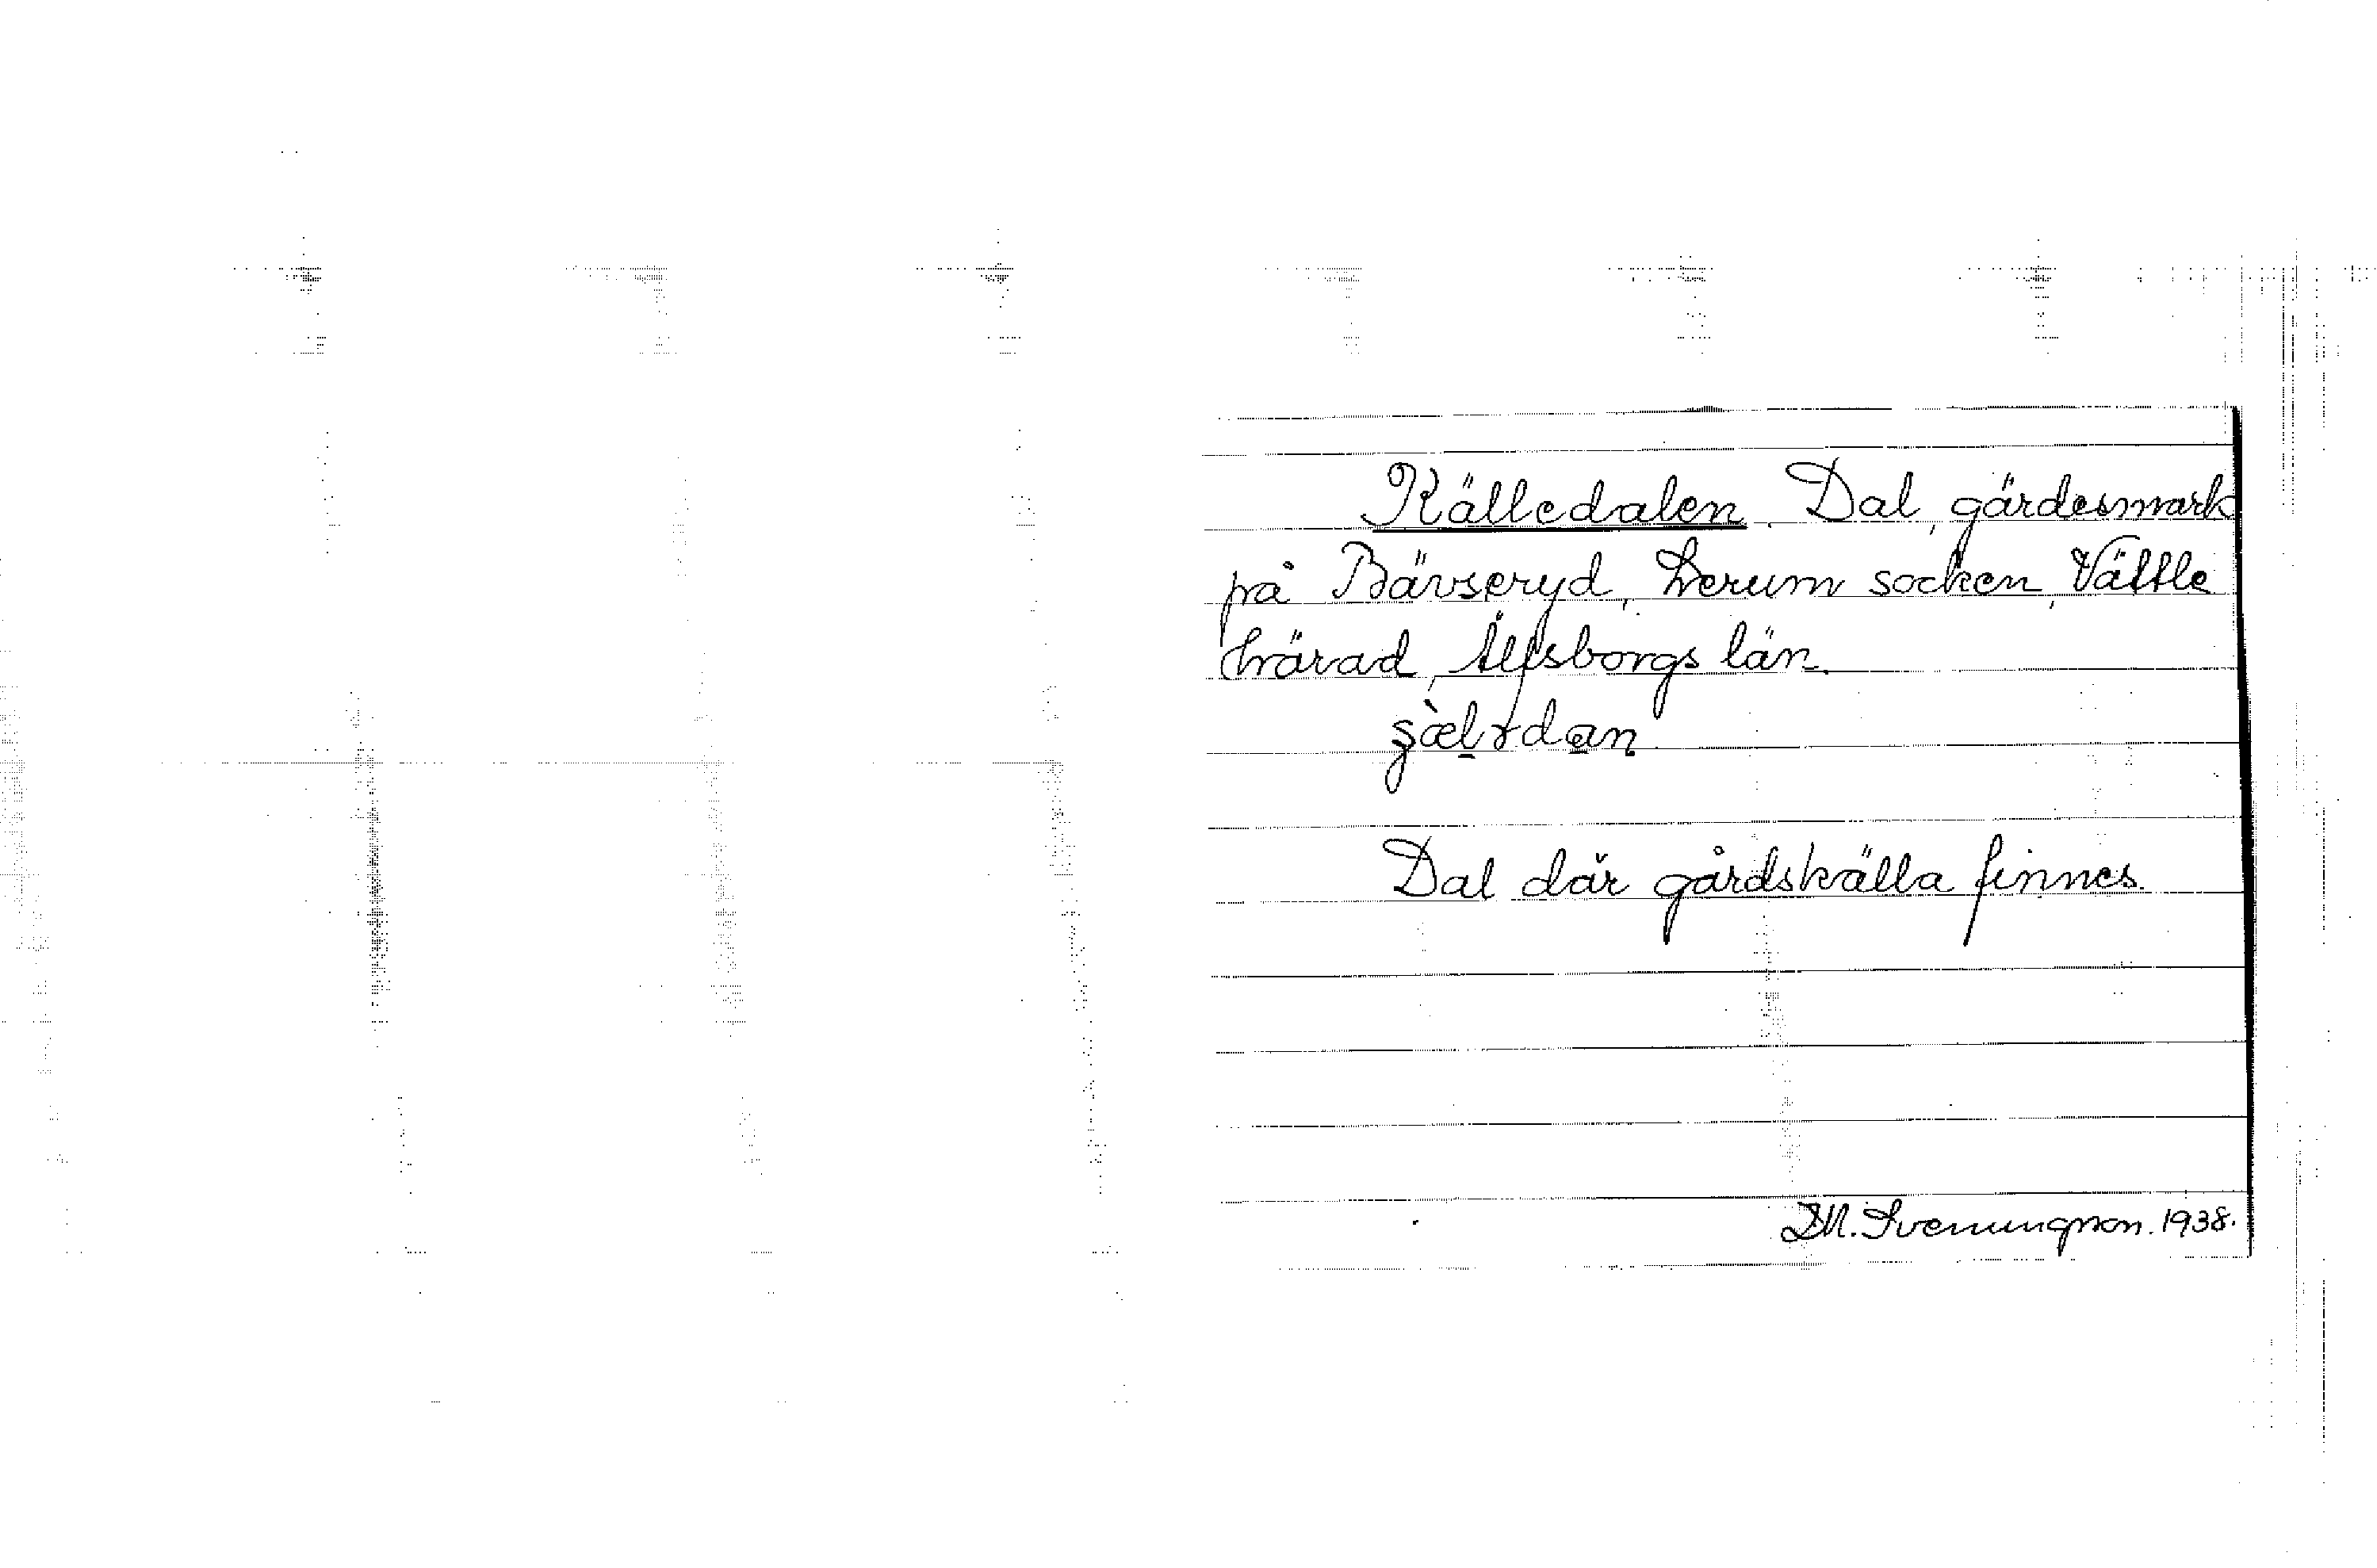 Källedalen. Dal, gärdesmark
på Bävseryd, Lerum socken, Vättle
härad, Älfsborgs län.
Dal där gårdskälla finnes.
D.M. Svenungson. 1938.